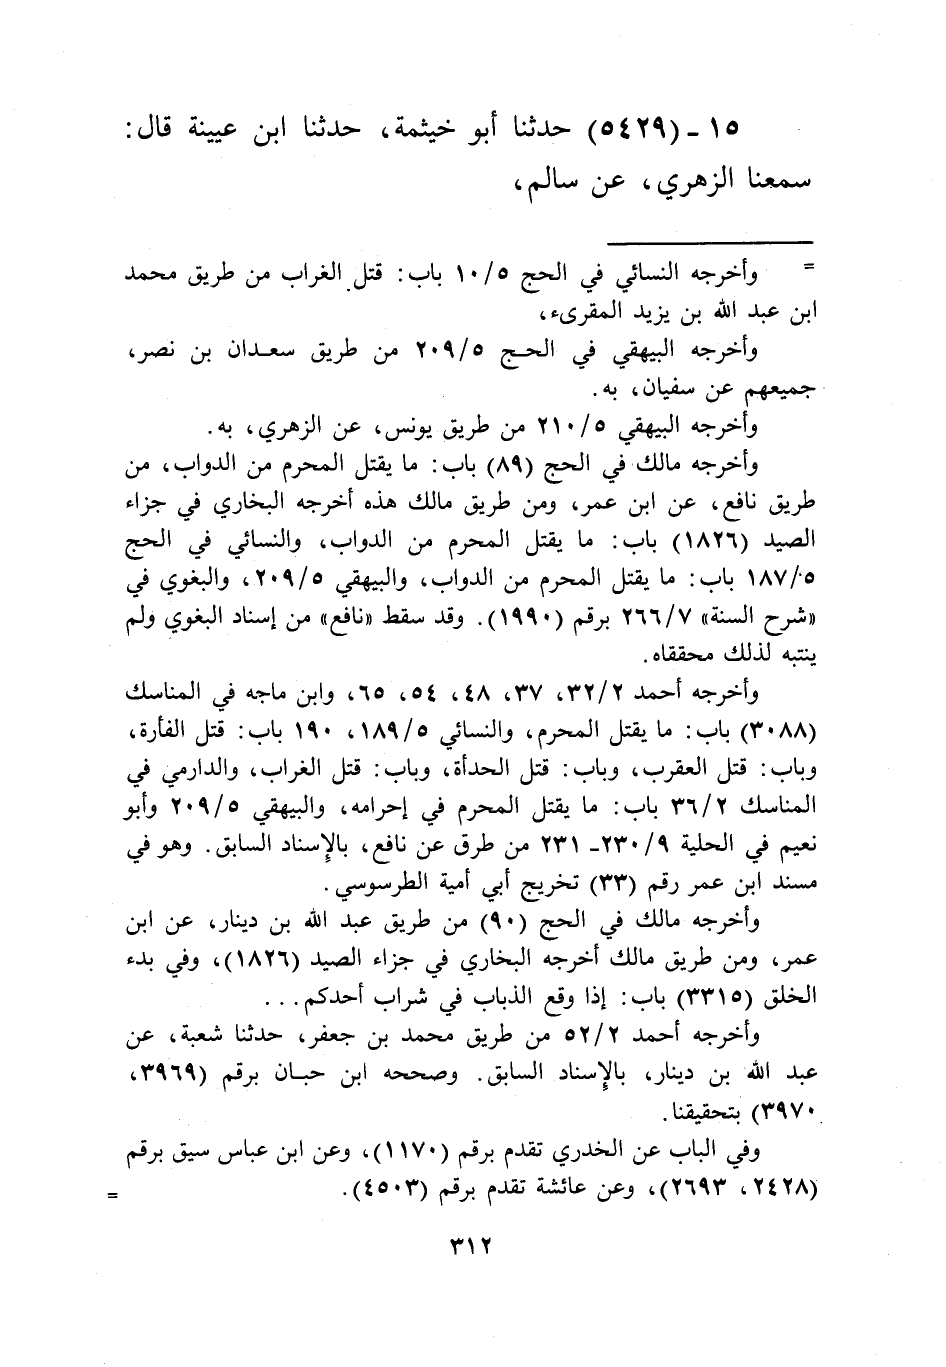 ١٥ - (٥٤٢٩) حدثنا أبو خيثمة، حدثنا ابن عيينة قال:
سمعنا الزهري، عن سالم،
= وأخرجه النسائي في الحج ١٠/٥ باب: قتل الغراب من طريق محمد
ابن عبد الله بن يزيد المقرىء،
وأخرجه البيهقي في الحج ٢٠٩/٥ من طريق سعدان بن نصر،
جميعهم عن سفيان، به.
وأخرجه البيهقي ٢١٠/٥ من طريق يونس، عن الزهري، به.
وأخرجه مالك في الحج (٨٩) باب: ما يقتل المحرم من الدواب، من
طريق نافع، عن ابن عمر، ومن طريق مالك هذه أخرجه البخاري في جزاء
الصيد (١٨٢٦) باب: ما يقتل المحرم من الدواب، والنسائي في الحج
١٨٧/٥ باب: ما يقتل المحرم من الدواب، والبيهقي ٢٠٩/٥، والبغوي في
«شرح السنة» ٢٦٦/٧ برقم (١٩٩٠). وقد سقط «نافع» من إسناد البغوي ولم
ينتبه لذلك محققاه.
وأخرجه أحمد ٣٢/٢، ٣٧، ٤٨، ٥٤، ٦٥، وابن ماجه في المناسك
(٣٠٨٨) باب: ما يقتل المحرم، والنسائي ١٨٩/٥، ١٩٠ باب: قتل الفأرة،
وباب: قتل العقرب، وباب: قتل الحدأة، وباب: قتل الغراب، والدارمي في
المناسك ٣٦/٢ باب: ما يقتل المحرم في إحرامه، والبيهقي ٢٠٩/٥ وأبو
نعيم في الحلية ٢٣٠/٩- ٢٣١ من طرق عن نافع، بالإسناد السابق. وهو في
مسند ابن عمر رقم (٣٣) تخريج أبي أمية الطرسوسي.
وأخرجه مالك في الحج (٩٠) من طريق عبد الله بن دينار، عن ابن
عمر، ومن طريق مالك أخرجه البخاري في جزاء الصيد (١٨٢٦)، وفي بدء
الخلق (٣٣١٥) باب: إذا وقع الذباب في شراب أحدكم...
وأخرجه أحمد ٥٢/٢ من طريق محمد بن جعفر، حدثنا شعبة، عن
عبد الله بن دينار، بالإسناد السابق. وصححه ابن حبان برقم (٣٩٦٩،
٣٩٧٠) بتحقيقنا.
وفي الباب عن الخدري تقدم برقم (١١٧٠)، وعن ابن عباس سيق برقم
(٢٤٢٨، ٢٦٩٣)، وعن عائشة تقدم برقم (٤٥٠٣). =
٣١٢